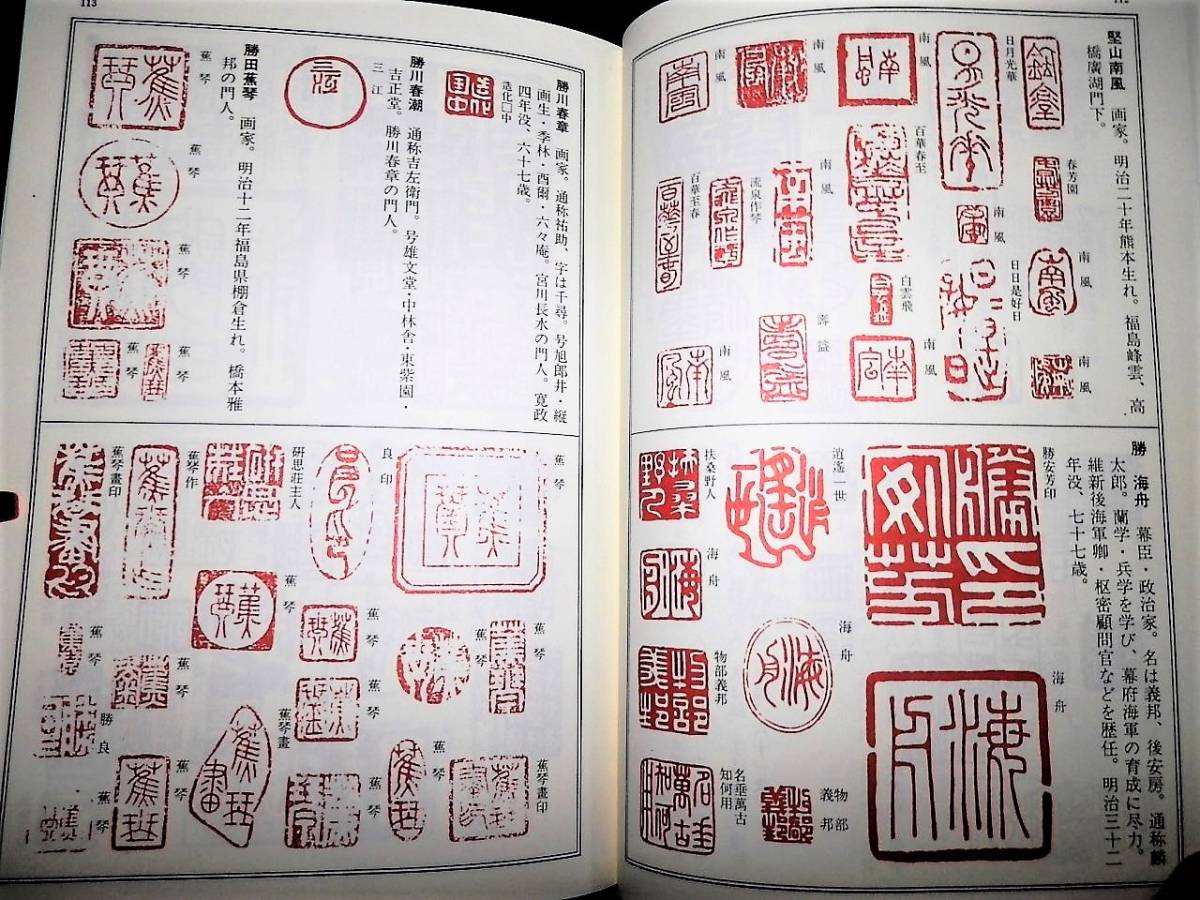 112
堅山南風　画家。明治二十年熊本生れ。福島峰雲、高
橋廣湖門下。
日月光華
南風
南風
春芳園
南風
南風
百華春至
南風
流泉作琴
百華至春
南風
日日是好日
白雲飛
南風
南風
壽益
南風
勝　海舟　幕臣・政治家。名は義邦、後安房。通称麟
太郎。蘭学・兵学を学び、幕府海軍の育成に尽力。
維新後海軍卿・枢密顧問官などを歴任。明治三十二
年没、七十七歳。
勝安芳印
海舟
逍遙一世
海舟
扶桑野人
海舟
物部義邦
物部
義邦
名垂萬古
知何用
113
勝川春章　画家。通称祐助、字は千尋。号旭郎井・縦
画生・季林・酉爾・六々庵。宮川長水の門人。寛政
四年没、六十七歳。
造化□中
勝川春潮　通称吉左衛門。号雄文堂・中林舎・東紫園・
吉正堂。勝川春章の門人。
三江
勝田蕉琴　画家。明治十二年福島県棚倉生れ。橋本雅
邦の門人。
蕉琴
蕉琴
蕉琴
蕉琴
蕉琴
蕉琴
良印
研思荘主人
蕉琴作
蕉琴畫印
蕉琴
蕉琴
蕉琴
蕉琴
蕉琴
蕉琴
勝良
蕉琴畫
蕉琴
蕉琴畫印
蕉琴
蕉琴
蕉琴